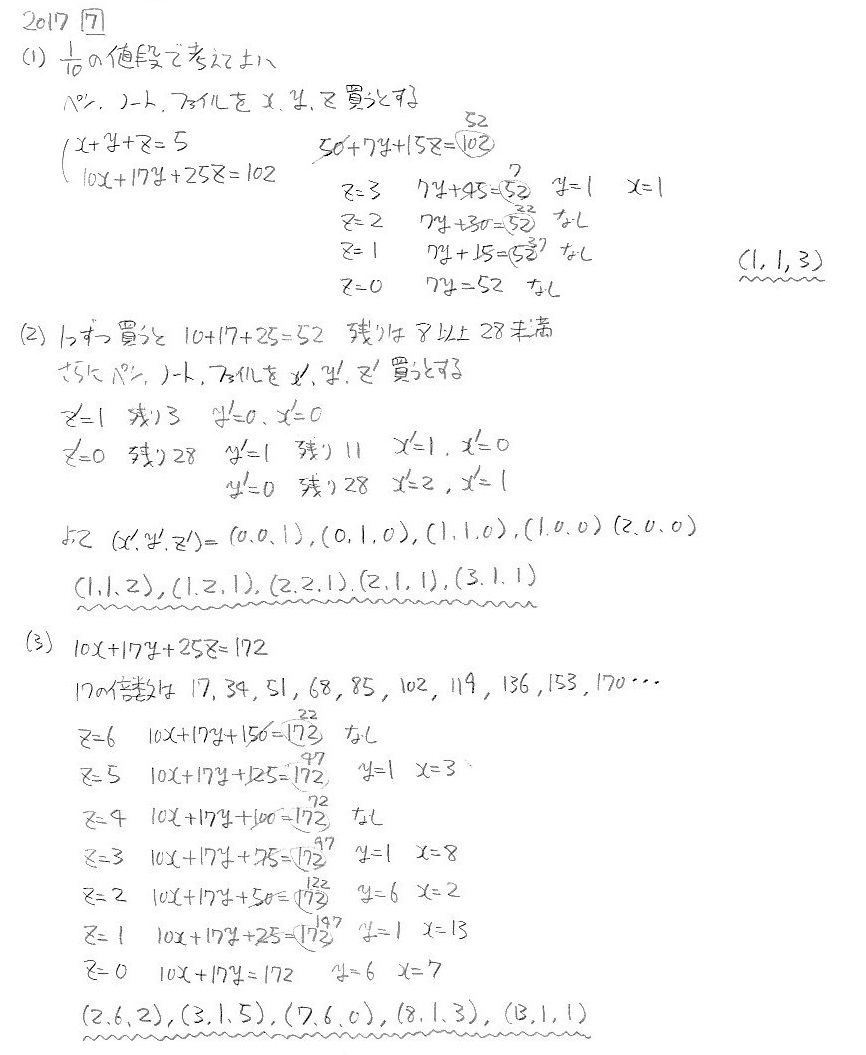 2017 7
(1) 1/10の値段で考えてよい
ペン、ノート、ファイルを x, y, z 買うとする
x+y+z=5
10x+17y+25z=102
52
50+7y+15z=102
7
z=3 7y+45=52 y=1 x=1
22
z=2 7y+30=52 なし
37
z=1 7y+15=52 なし
z=0 7y=52 なし
(1,1,3)
(2) 1つずつ買うと 10+17+25=52 残りは 8以上 28未満
さらに ペン、ノート、ファイルを x', y', z' 買うとする
z'=1 残り3 y'=0、x'=0
z'=0 残り28 y'=1 残り11 x'=1, x'=0
y'=0 残り28 x'=2, x'=1
よって (x', y', z')= (0,0,1), (0,1,0), (1,1,0), (1,0,0) (2,0,0)
(1,1,2), (1,2,1), (2,2,1), (2,1,1), (3,1,1)
(3) 10x+17y+25z=172
17の倍数は 17, 34, 51, 68, 85, 102, 119, 136, 153, 170…
22
z=6 10x+17y+150=172 なし
47
z=5 10x+17y+125=172 y=1 x=3
72
z=4 10x+17y+100=172 なし
97
z=3 10x+17y+75=172 y=1 x=8
122
z=2 10x+17y+50=172 y=6 x=2
147
z=1 10x+17y+25=172 y=1 x=13
z=0 10x+17y=172 y=6 x=7
(2,6,2), (3,1,5), (7,6,0), (8,1,3), (13,1,1)